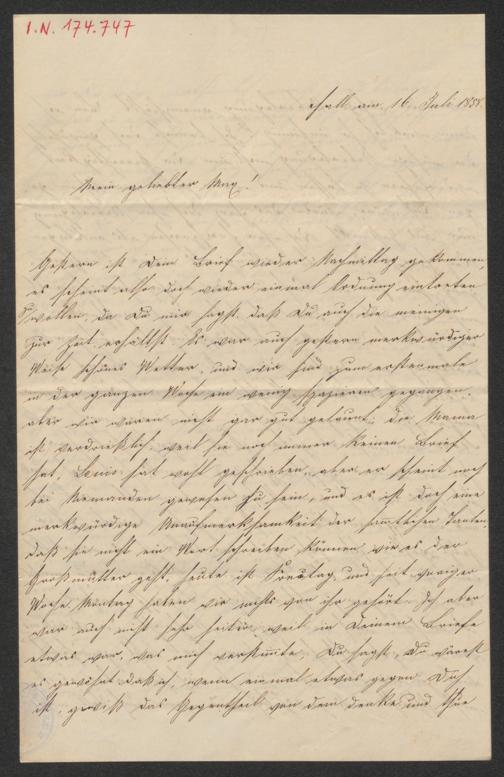 I.N. 174.747
Hall am 16. Juli 1858.
Mein geliebter Max!
Gestern ist Dein Brief wieder Nachmittag gekommen,
es scheint also doch wieder einmal Ordnung eintreten
zu wollen, da Du mir sagst, daß Du auch die meinigen
zur Zeit erhältst. Es war auch gestern merkwürdiger
Weise schönes Wetter, und wir sind zum erstenmale
in der ganzen Woche ein wenig spazieren gegangen,
aber wir waren nicht gar gut gelaunt; die Mama
ist verdrießlich, weil sie noch immer keinen Brief
hat, Louis hat wohl geschrieben, aber er scheint noch
bei Niemanden gewesen zu sein, und es ist doch eine
merkwürdige Unaufmerksamkeit der sämtlichen Tanten,
daß sie nicht ein Wort schreiben können, wie es der
Großmutter geht, heute ist Freitag, und seit voriger
Woche Montag haben wir nichts von ihr gehört. Ich aber
war auch nicht sehr heiter, weil in Deinem Briefe
etwas war, was mich verstimmte. Du sagst, Du wärest
es gewöhnt daß ich, wenn einmal etwas gegen Dich
ist, gewiß das Gegentheil von dem denke und thue